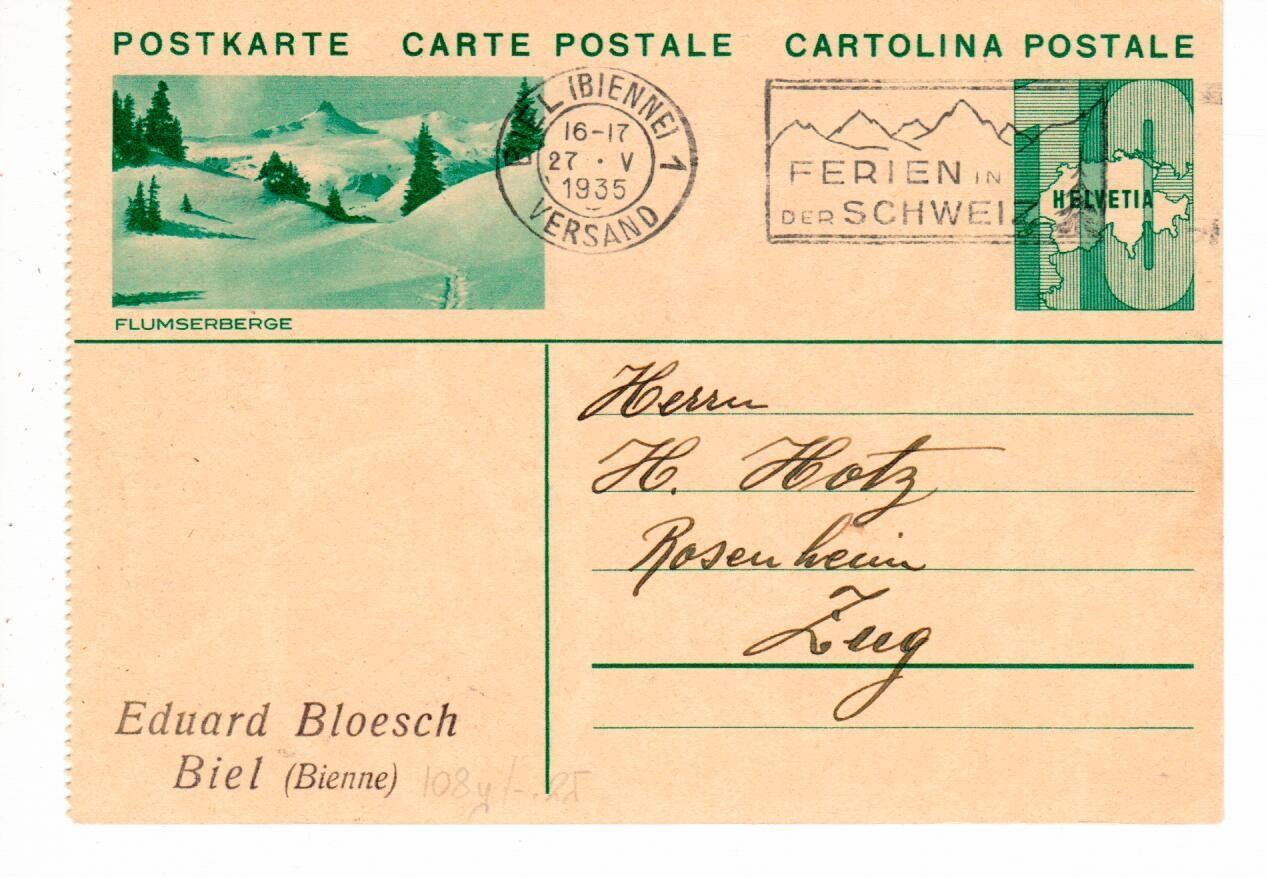 POSTKARTE CARTE POSTALE CARTOLINA POSTALE
BIEL (BIENNE) 1
16-17
27 · V
1935
VERSAND
FERIEN IN
DER SCHWEIZ
10
HELVETIA
FLUMSERBERGE
Herrn
H. Hotz
Rosenheim
Zug
Eduard Bloesch
Biel (Bienne)
108y/-.25